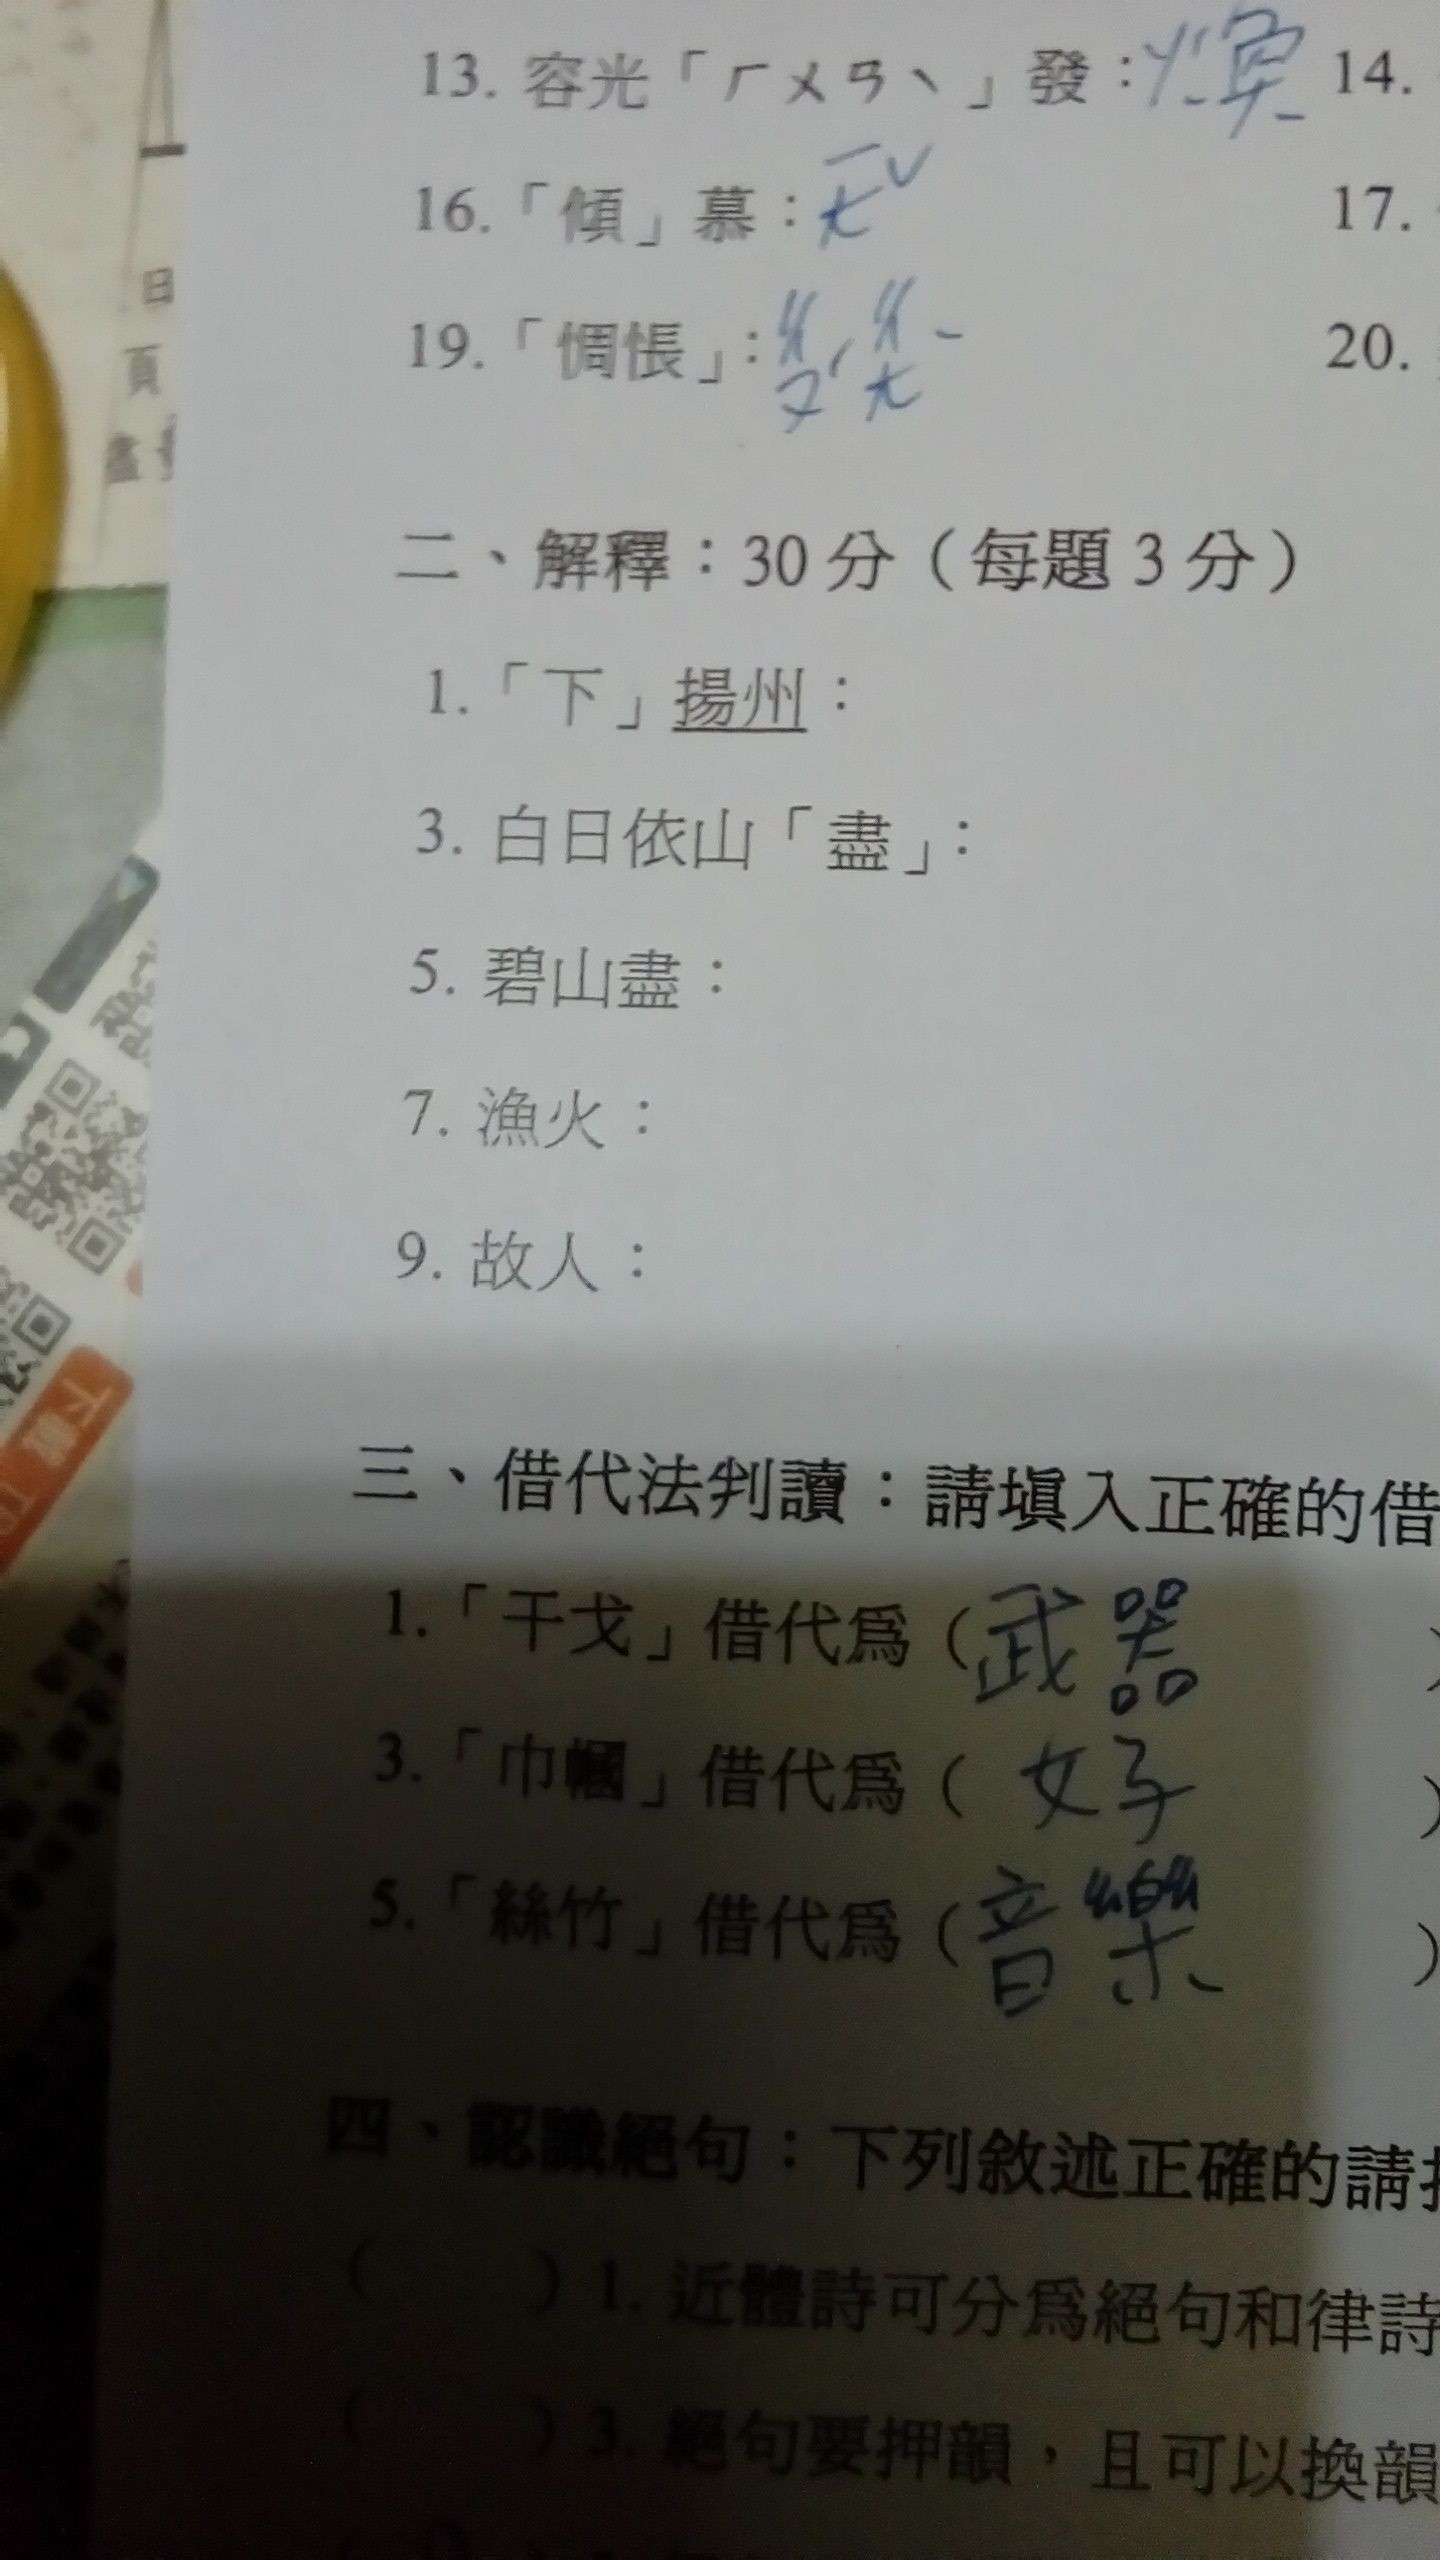 13. 容光「ㄏㄨㄢˋ」發：煥 14.
16.「傾」慕： 17.
19.「惆悵」： 20.
二、解釋：30 分（每題 3 分）
1.「下」揚州：
3. 白日依山「盡」：
5. 碧山盡：
7. 漁火：
9. 故人：
三、借代法判讀：請填入正確的借
1.「干戈」借代為（武器 ）
3.「巾幗」借代為（ 女子 ）
5.「絲竹」借代為（音樂 ）
四、認識絕句：下列敘述正確的請
（ ）1. 近體詩可分為絕句和律詩
（ ）3. 絕句要押韻，且可以換韻
日
頁
下載